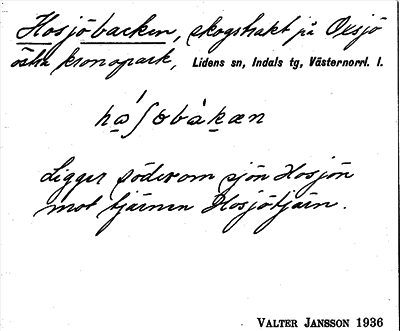 Hosjöbacken, skogstrakt på Oxsjö
östra kronopark, Lidens sn, Indals tg, Västernorrl. l.
Ligger söder om sjön Hosjön
mot tjärnen Hosjötjärn.
VALTER JANSSON 1936